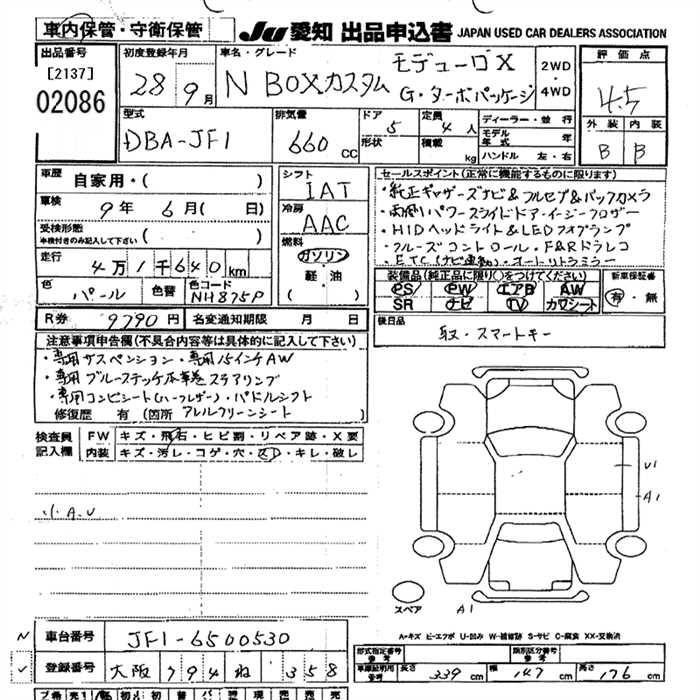 車内保管・守衛保管
JU 愛知 出品申込書 JAPAN USED CAR DEALERS ASSOCIATION
出品番号
[2137]
02086
初度登録年月
28 9月
車名・グレード
N BOXカスタム
モデューロX
G・ターボパッケージ
2WD
4WD
評価点
4.5
外装 内装
B B
型式
DBA-JF1
排気量
660 CC
ドア 5
形状
定員 4人
積載 kg
ディーラー・並行
モデル 年
ハンドル 左・右
車歴
自家用・( )
車検
9年 6月( 日)
受検形態
車検付きのみ記入して下さい ( )
走行
4万1千640km
色 パール
色替
色コード NH875P
シフト
IAT
冷房
AAC
燃料
ガソリン
軽・油
( )
セールスポイント(正常に機能するものに限ります)
・純正ギャザーズナビ&フルセグ&バックカメラ
・両側パワースライドドア・イージークローザー
・HIDヘッドライト&LEDフォグランプ
・クルーズコントロール・F&Rドラレコ
・ETC(ナビ連動)・オートリトラミラー
装備品(純正品に限り○をつけてください)
PS PW エアB AW
SR ナビ TV カワシート
新車保証書
有・無
R券 9790円 名変通知期限 月 日
後日品
取・スマートキー
注意事項申告欄(不具合内容等は具体的に記入して下さい)
・専用サスペンション・専用15インチAW
・専用ブルーステッチ本革巻ステアリング
・専用コンビシート(ハーフレザー)・パドルシフト
修復歴 有 (箇所 アレルクリーンシート
検査員
記入欄
FW キズ・飛石・ヒビ割・リペア跡・X要
内装 キズ・汚レ・コゲ・穴・スレ・キレ・破レ
小A.U
U1
A1
スペア
A1
A-キズ E-エクボ U-凹み W-補修跡 S-サビ C-腐食 XX-交換済
車台番号 JF1-6500530
登録番号 大阪 794 ね 358
型式指定番号
参考
類別区分番号
参考
車検証明用
参考
長さ 339cm 幅 147cm 高さ 176cm